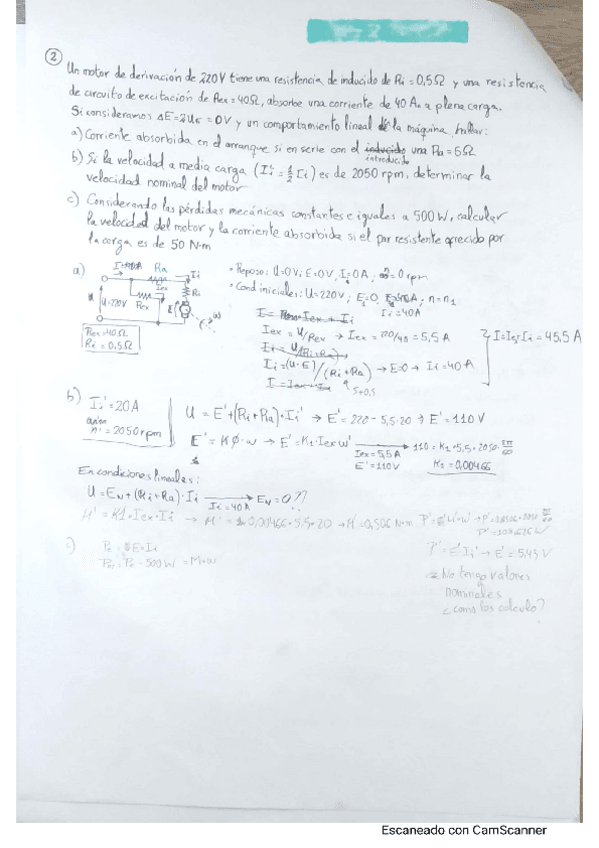 2
Un motor de derivación de 220V tiene una resistencia de inducido de Ri = 0,5Ω y una resistencia
de circuito de excitación de Rex = 40Ω, absorbe una corriente de 40 A a plena carga.
Si consideramos ΔE = 2Ue = 0V y un comportamiento lineal de la máquina, hallar:
a) Corriente absorbida en el arranque si en serie con el inducido una Ra = 5Ω
introducido
b) Si la velocidad a media carga (Ii' = 1/2 Ii) es de 2050 rpm, determinar la
velocidad nominal del motor
c) Considerando las pérdidas mecánicas constantes e iguales a 500 W, calcular
la velocidad del motor y la corriente absorbida si el par resistente ofrecido por
la carga es de 50 N·m
a)
I = 40A Ra Ii
Iex Ri
U U=220V Rex E
Rex = 40Ω
Ri = 0,5Ω
• Reposo: U = 0V; E = 0V, I = 0A, n = 0 rpm
• Cond iniciales: U = 220V; E = 0, n = n1
Ii = 40A
Iex = U/Rex → Iex = 220/40 = 5,5 A
Ii = (U-E)/(Ri+Ra) → E=0 → Ii = 40A
5+0,5
I = Iex + Ii = 45,5 A
b) Ii' = 20A
n' = 2050 rpm
U = E' + (Ri+Ra)·Ii' → E' = 220 - 5,5·20 → E' = 110 V
E' = KØ·w → E' = K1·Iex w'
Iex = 5,5A
E' = 110V
110 = K1·5,5·2050·2π/60
K1 = 0,00466
En condiciones lineales:
U = EN + (Ri+Ra)·Ii
Ii = 40A
EN = 0??
M' = K1·Iex·Ii → M' = 0,00466·5,5·20 → M' = 0,506 N·m
P' = E' Ii' → E' = 5,43 V
c) Pe = E·Ii
Pm = Pe - 500W = M·w
No tengo valores
nominales
¿como los calculo?
Escaneado con CamScanner